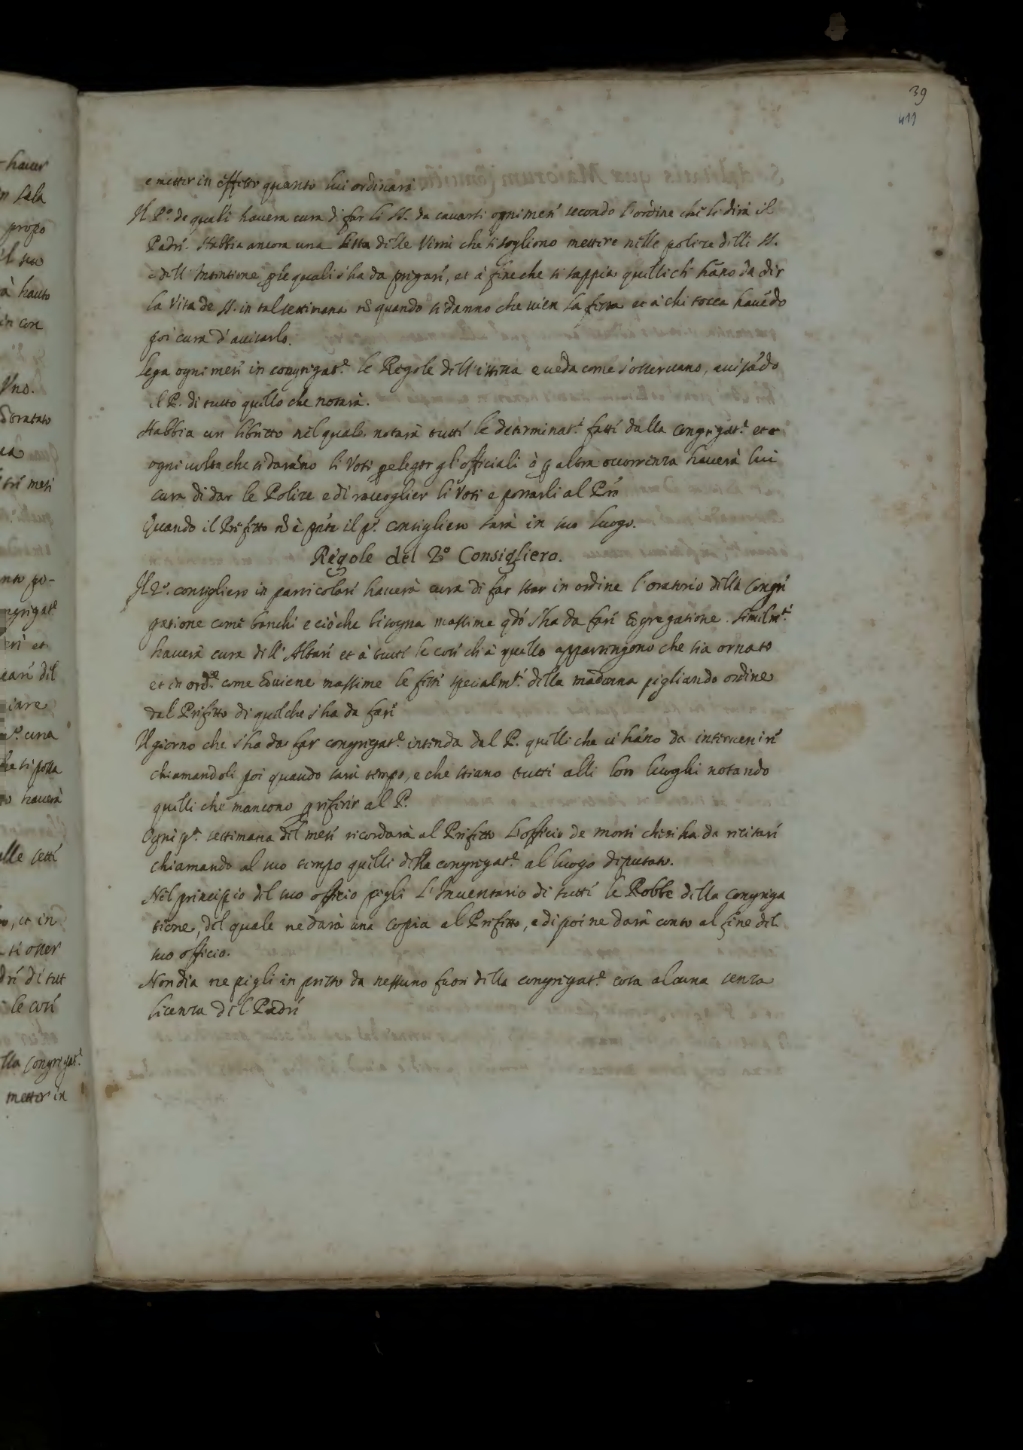 39
411
e metter in effetto quanto lui ordinarà
Il P.º de quali havera cura di far li SS. da cavarsi ogni mese secondo l'ordine che li dirà il
Padre. Habbia ancora una lista delle Virtù che si sogliono mettere nelle polize delli SS.
e dell'Intentione p le quali s'ha da pregare, et à fine che si sappia quelli ch'hãno da dir
la Vita de SS. in tal settimana quando si danno che vien la festa et à chi tocca havẽdo
poi cura d'avisarlo.
Lega ogni mese in congregat.e le Regole dell'istessa e veda come s'osservano, avisãdo
il P. di tutto quello che notarà.
Habbia un libretto nel quale notarà tutte le determinat.i fatte dalla congregat.e et
ogni volta che si darãno li Voti p elegger gl'officiali ò p altra occorrenza haverà lui
cura di dar le Polize e di raccoglier li Voti e portarli al Prõ
Quando il Prefetto nõ è pñte il p.º consigliero sarà in suo luogo.
Regole del 2º Consigliero.
Il 2º. consigliero in particolare haverà cura di far star in ordine l'oratorio della Congre
gatione come banchi e ciò che bisogna massime qdo s'ha da fare Cõgregatione. Similm.te
haverà cura dell'Altare et à tutte le cose ch'à quello appartengono che sia ornato
et in ord.e come cõviene massime le feste specialm.te della madonna pigliando ordine
dal Prefetto di quel che s'ha da fare
Il giorno che s'ha da far congregat.e intenda dal P. quelli che ci hãno da intervenire
chiamandoli poi quando sarà tempo, e che stiano tutti alli loro luoghi notando
quelli che mancono p riferir al P.
Ogni p.a settimana del mese ricordarà al Prefetto l'officio de morti che si ha da recitare
chiamando al suo tempo quelli della congregat.e al luogo diputato.
Nel principio del suo officio pigli l'Inventario di tutte le Robbe della congrega
tione, del quale ne darà una copia al Prefetto, e di poi ne darà conto al fine del
suo officio.
Non dia ne pigli in presto da nessuno fuori della congregat.e cosa alcuna senza
licenza del Padre